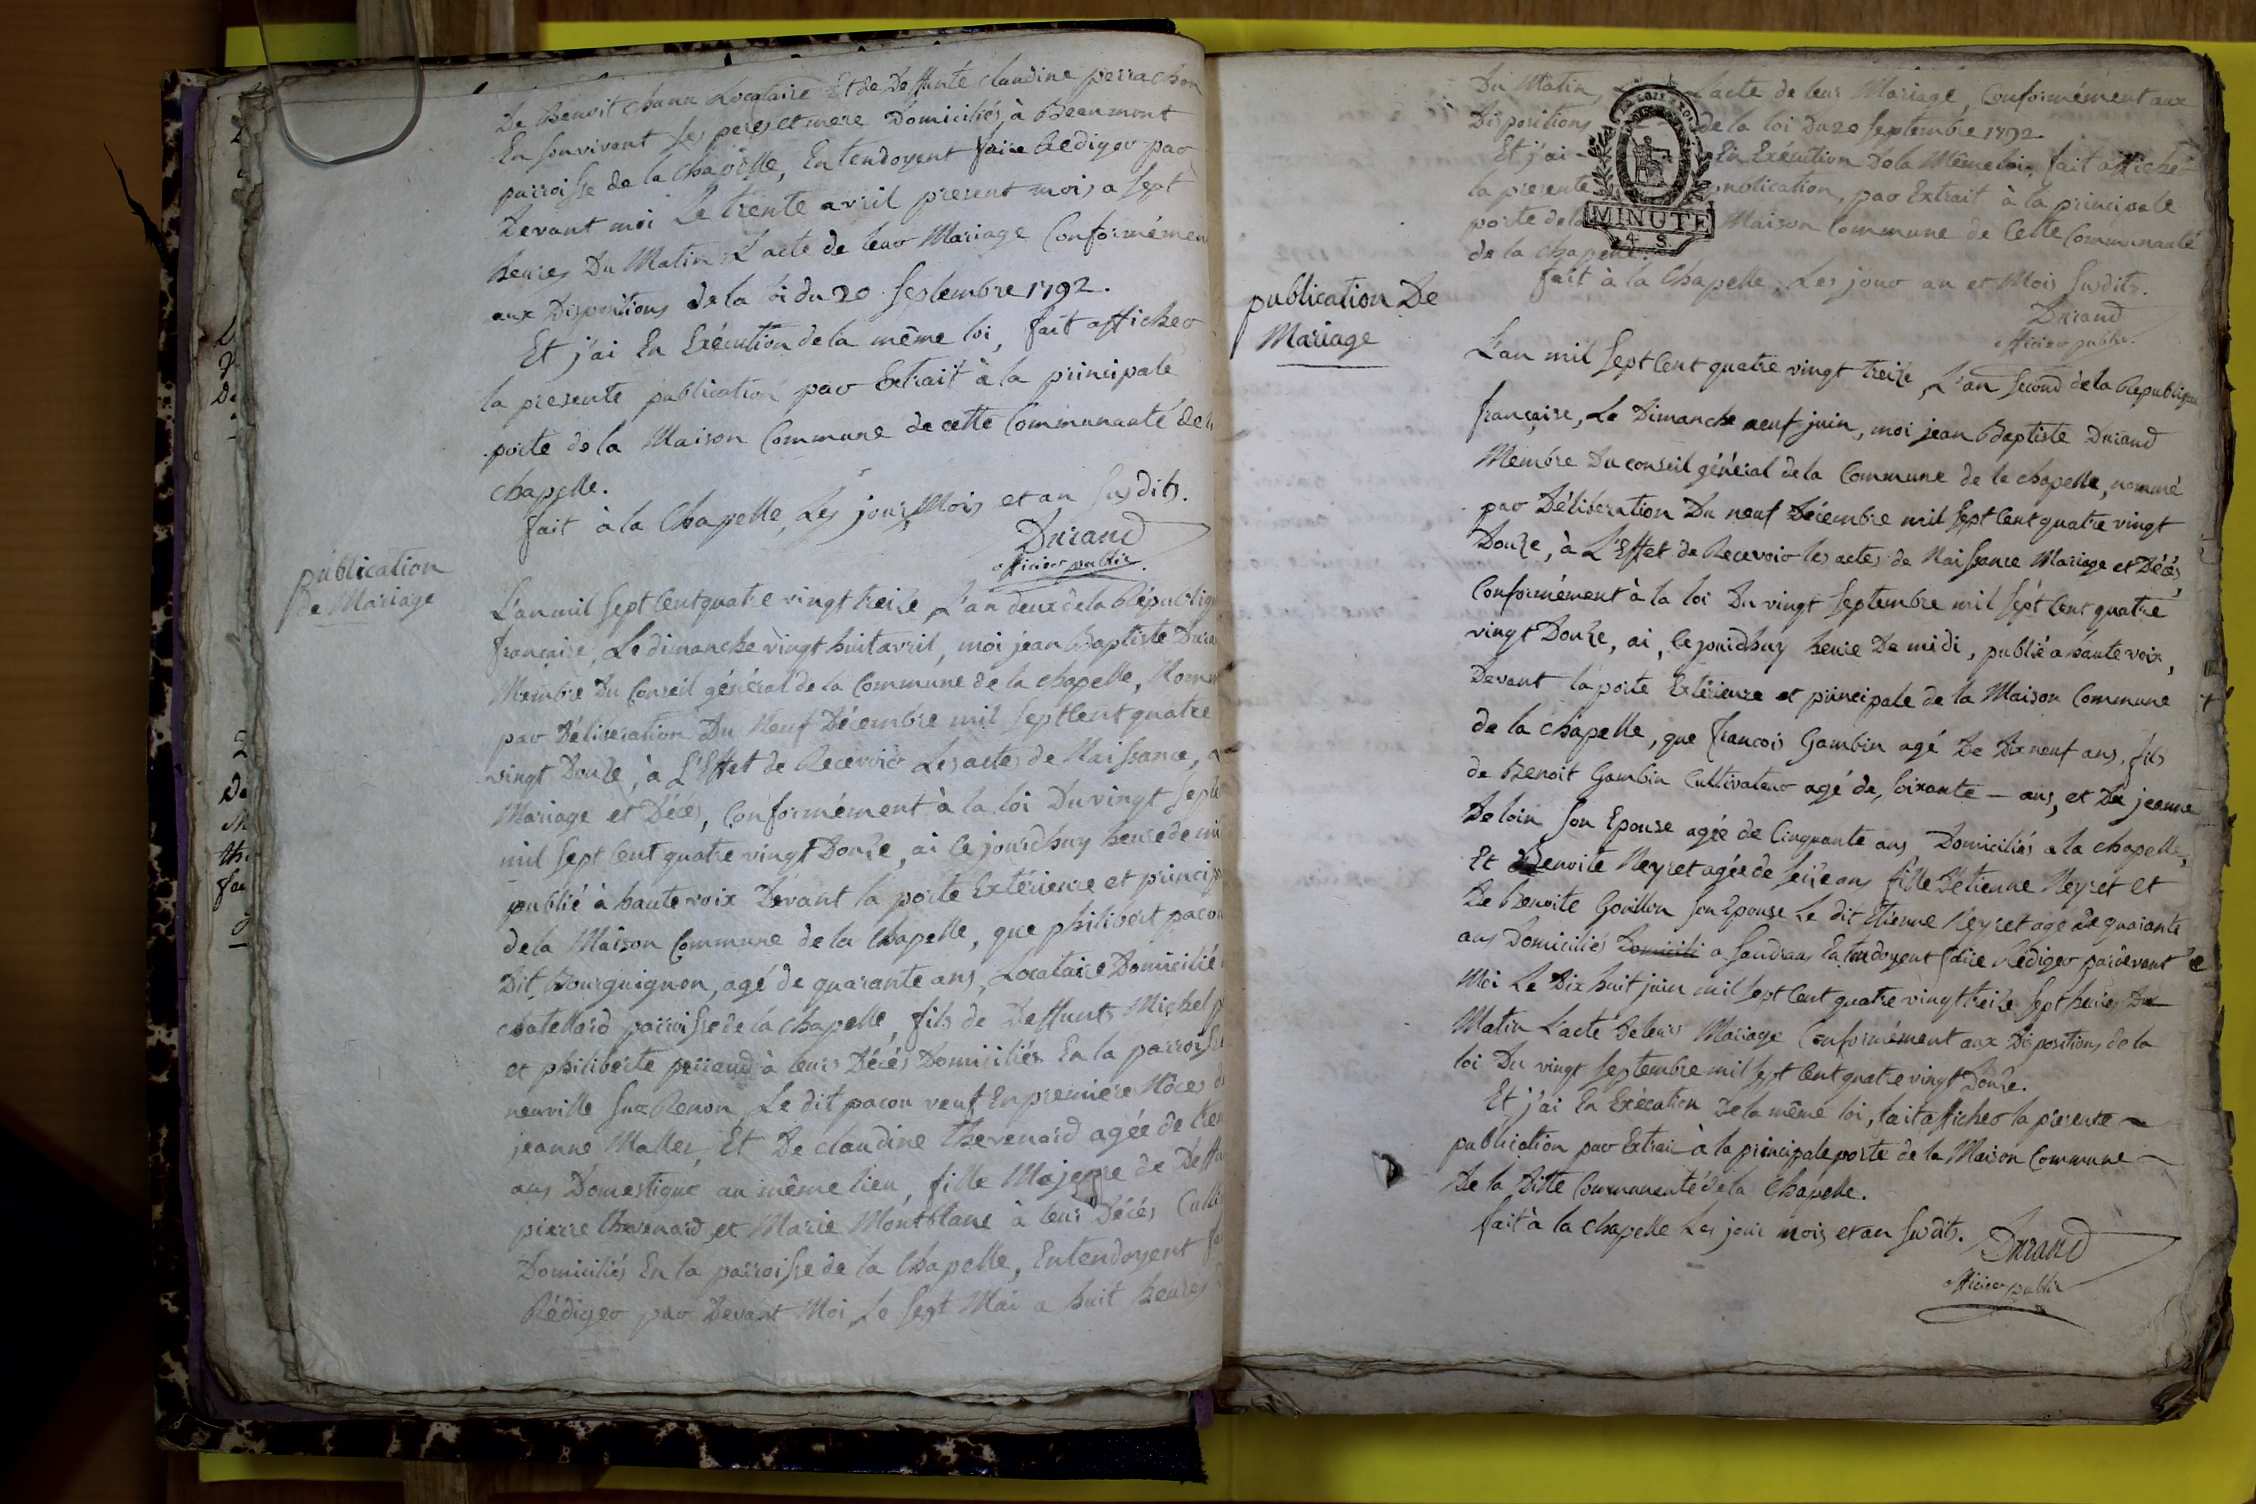 De Benoit chanu Locataire Et de Deffunte claudine perrachon
En son vivant ses peres et mere Domiciliés à Beaumont
parroisse de la Chapelle, Entendoyent faire Rediger par
Devant moi Le trente avril present mois a sept
heures Du Matin L'acte de leur Mariage Conformémen
aux Dispositions de la loi du 20 Septembre 1792.
Et j'ai En Exécution de la même loi, fait afficher
la presente publication par Extrait à la principale
porte de la Maison Commune de cette Communauté de l
chapelle.
fait à la Chapelle, Les jour, Mois et an susdits.
Durand
officier public.
publication
de Mariage
L'an mil sept Cent quatre vingt treize L'an deux de la Républiq
française, Le dimanche vingt huit avril, moi jean Baptiste Dura
Membre Du Conseil général de la Commune de la chapelle, Nom
par Délibération Du Neuf Décembre mil sept Cent quatre
vingt Douze, à L'Effet de Recevoir Les actes de Naissance,
Mariage et Décès, Conformément à la loi Du vingt Sept
mil sept Cent quatre vingt Douze, ai Ce jourdhuy heure de mi
publié à haute voix Devant la porte Extérieure et princip
de la Maison Commune de la Chapelle, que philibert pacon
Dit Bourguignon, agé de quarante ans, Locataire Domicilié
chatellard parroisse de la chapelle, fils de Deffunts Michel p
et philiberte perraud à leurs Décès Domiciliés En la parroisse
neuville sur Renon, Le dit pacon veuf En premiere Nôces d
jeanne Maller, Et De Claudine thevenard agée de tren
ans Domestique au même lieu, fille Majeure de Deffu
pierre thevenard et Marie Montblanc à leur Décès Culti
Domiciliés En la parroisse de la Chapelle, Entendoyent fa
Rédiger par Devant Moi Le sept Mai a huit heures
Du Matin L'acte de leur Mariage, Conformément aux
Dispositions de la loi Du 20 Septembre 1792.
Et j'ai En Exécution De la Même loi, fait afficher
la presente publication, par Extrait à la principale
porte de la Maison Commune de Cette Communauté
de la chapelle.
fait à la Chapelle, Les jour an et Mois susdits.
Durand
officier public.
MINUTE
4 S
publication De
Mariage
L'an mil sept Cent quatre vingt treize, L'an second de la Republique
française, Le Dimanche neuf juin, moi jean Baptiste Durand
Membre Du conseil général de la Commune de la chapelle, nommé
par Délibération Du neuf Décembre mil sept Cent quatre vingt
Douze, à L'Effet de Recevoir les actes de Naissance Mariage et Décès,
Conformément à la loi Du vingt Septembre mil sept Cent quatre
vingt Douze, ai, Ce jourdhuy heure De midi, publié à haute voix,
Devant la porte Extérieure et principale de la Maison Commune
de la chapelle, que francois Gambin agé De Dix neuf ans, fils
de Benoit Gambin Cultivateur agé de, soixante - ans, et De jeanne
Deloin son Epouse agée de Cinquante ans Domiciliés a la chapelle,
Et Benoite Neyret agée de seize ans fille D'etienne Neyret et
De Benoite Gouillon son Epouse Le dit Etienne Neyret agé de quarante
ans Domiciliés Domicili a Sandrans Entendoyent faire Rédiger pardevant
Moi Le Dix huit juin mil sept Cent quatre vingt treize sept heures Du
Matin L'acte De leurs Mariage Conformément aux Dispositions de la
loi Du vingt Septembre mil sept Cent quatre vingt Douze.
Et j'ai En Exécution De la même loi, fait afficher la présente
publication par Extrait à la principale porte de la Maison Commune
De la Ditte Communauté de la Chapelle.
fait à la chapelle Les jour mois et an susdits.
Durand
officier public